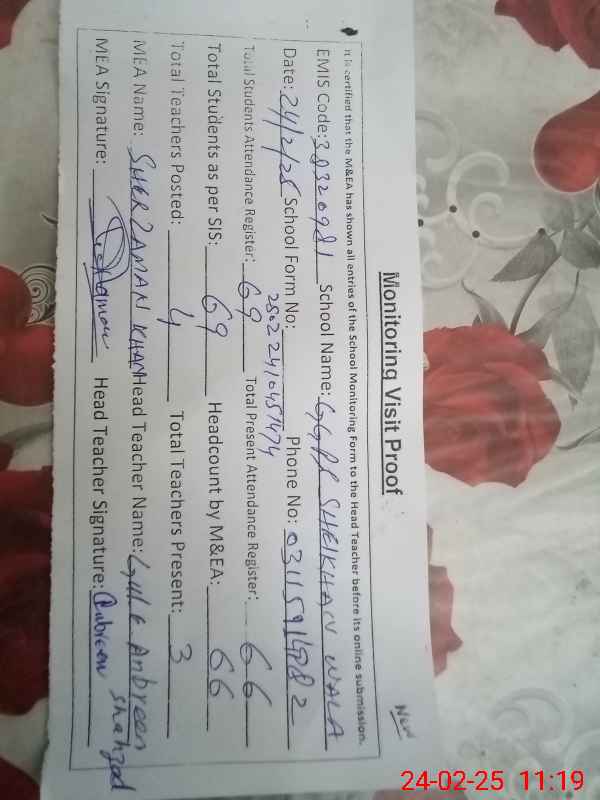 New
Monitoring Visit Proof
It is certified that the M&EA has shown all entries of the School Monitoring Form to the Head Teacher before its online submission.
EMIS Code: 38320981 School Name: GGPS SHEIKHAN WALA
Date: 24/2/25 School Form No: Phone No:
Total Students Attendance Register: 69 Total Present Attendance Register: 66
Total Students as per SIS: 69 Headcount by M&EA: 66
Total Teachers Posted: 4 Total Teachers Present: 3
MEA Name: SHER ZAMAN KHAN Head Teacher Name: Gul E Anbreen Shahzad
MEA Signature: Head Teacher Signature:
24-02-25 11:19